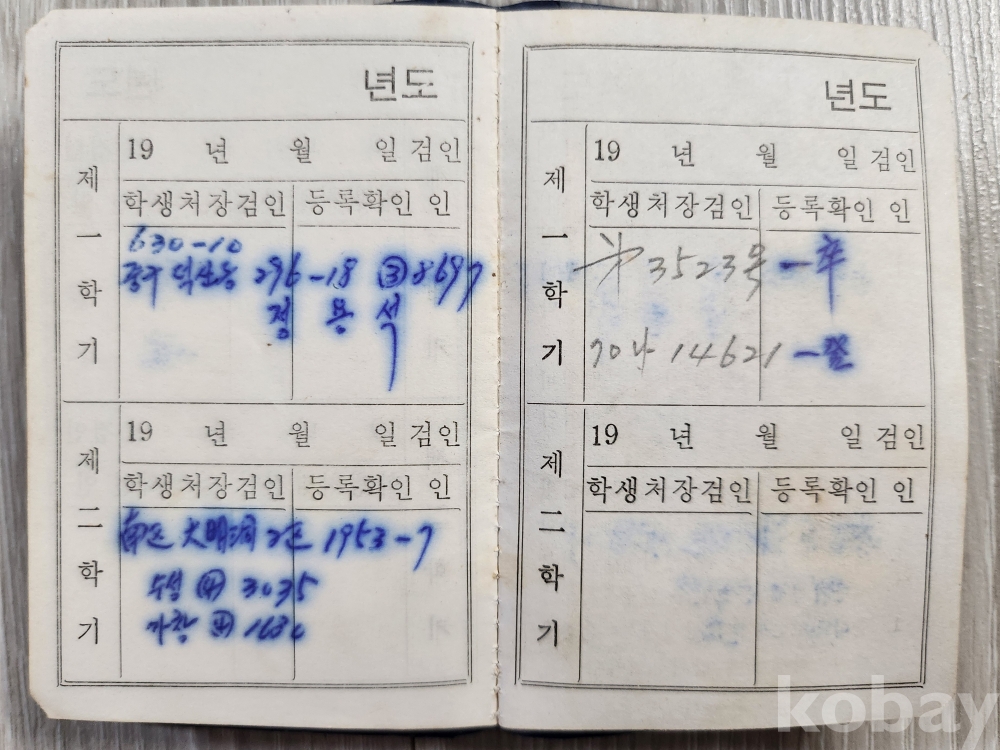 년도
19 년 월 일 검인
학생처장검인 등록확인 인
제 一 학 기
630-10
296-18 ③8697
정 용 석
19 년 월 일 검인
학생처장검인 등록확인 인
제 二 학 기
南区 大明洞 2区 1953-7
수성 ④ 3035
가창
년도
19 년 월 일 검인
학생처장검인 등록확인 인
제 一 학 기
3523号 - 卒
70나 14621 -
19 년 월 일 검인
학생처장검인 등록확인 인
제 二 학 기
kobay